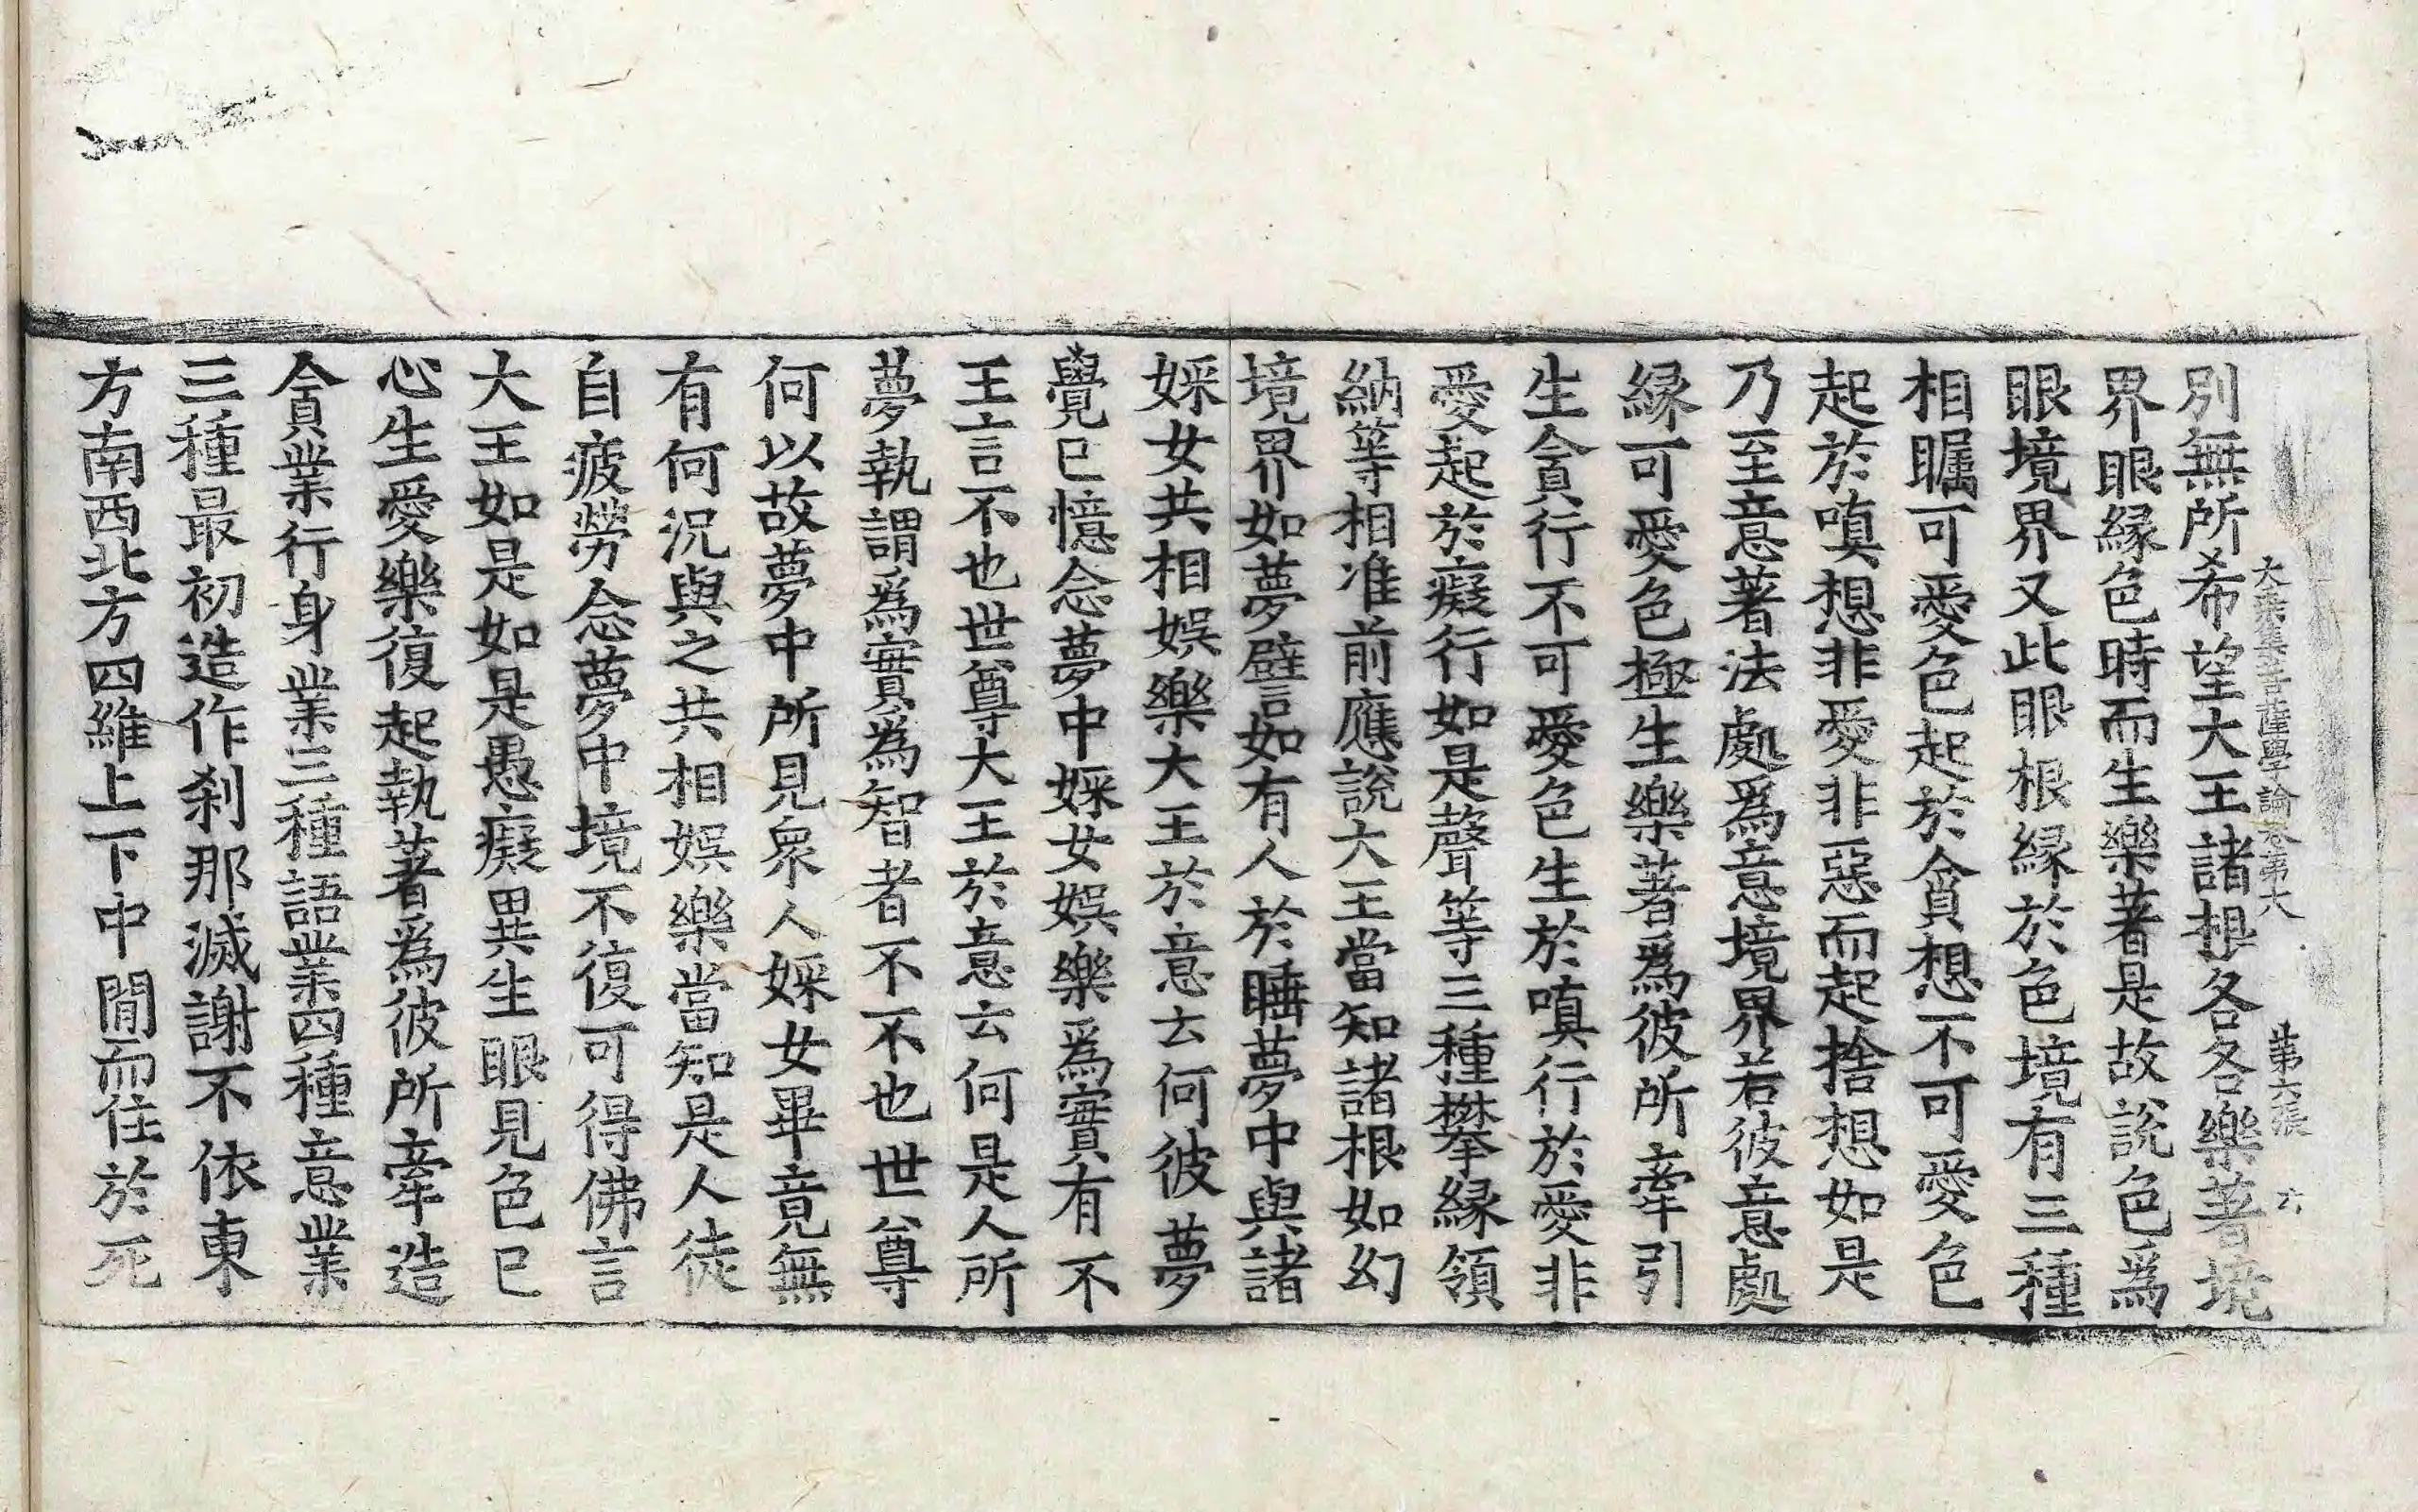 大乘集菩薩學論卷第六 第六張 六
別無所希望大王諸根各各樂著境
界眼緣色時而生樂著是故説色爲
眼境界又此眼根緣於色境有三種
相矚可愛色起於貪想不可愛色
起於嗔想非愛非惡而起捨想如是
乃至意著法處爲意境界若彼意處
緣可愛色極生樂著爲彼所牽引
生貪行不可愛色生於嗔行於愛非
愛起於癡行如是聲等三種攀緣領
納等相准前應説大王當知諸根如幻
境界如夢譬如有人於睡夢中與諸
婇女共相娛樂大王於意云何彼夢
覺已憶念夢中婇女娛樂爲實有不
王言不也世尊大王於意云何是人所
夢執謂爲實爲智者不不也世尊
何以故夢中所見衆人婇女畢竟無
有何況與之共相娛樂當知是人徒
自疲勞念夢中境不復可得佛言
大王如是如是愚癡異生眼見色已
心生愛樂復起執著爲彼所牽造
貪業行身業三種語業四種意業
三種最初造作刹那滅謝不依東
方南西北方四維上下中間而住於死